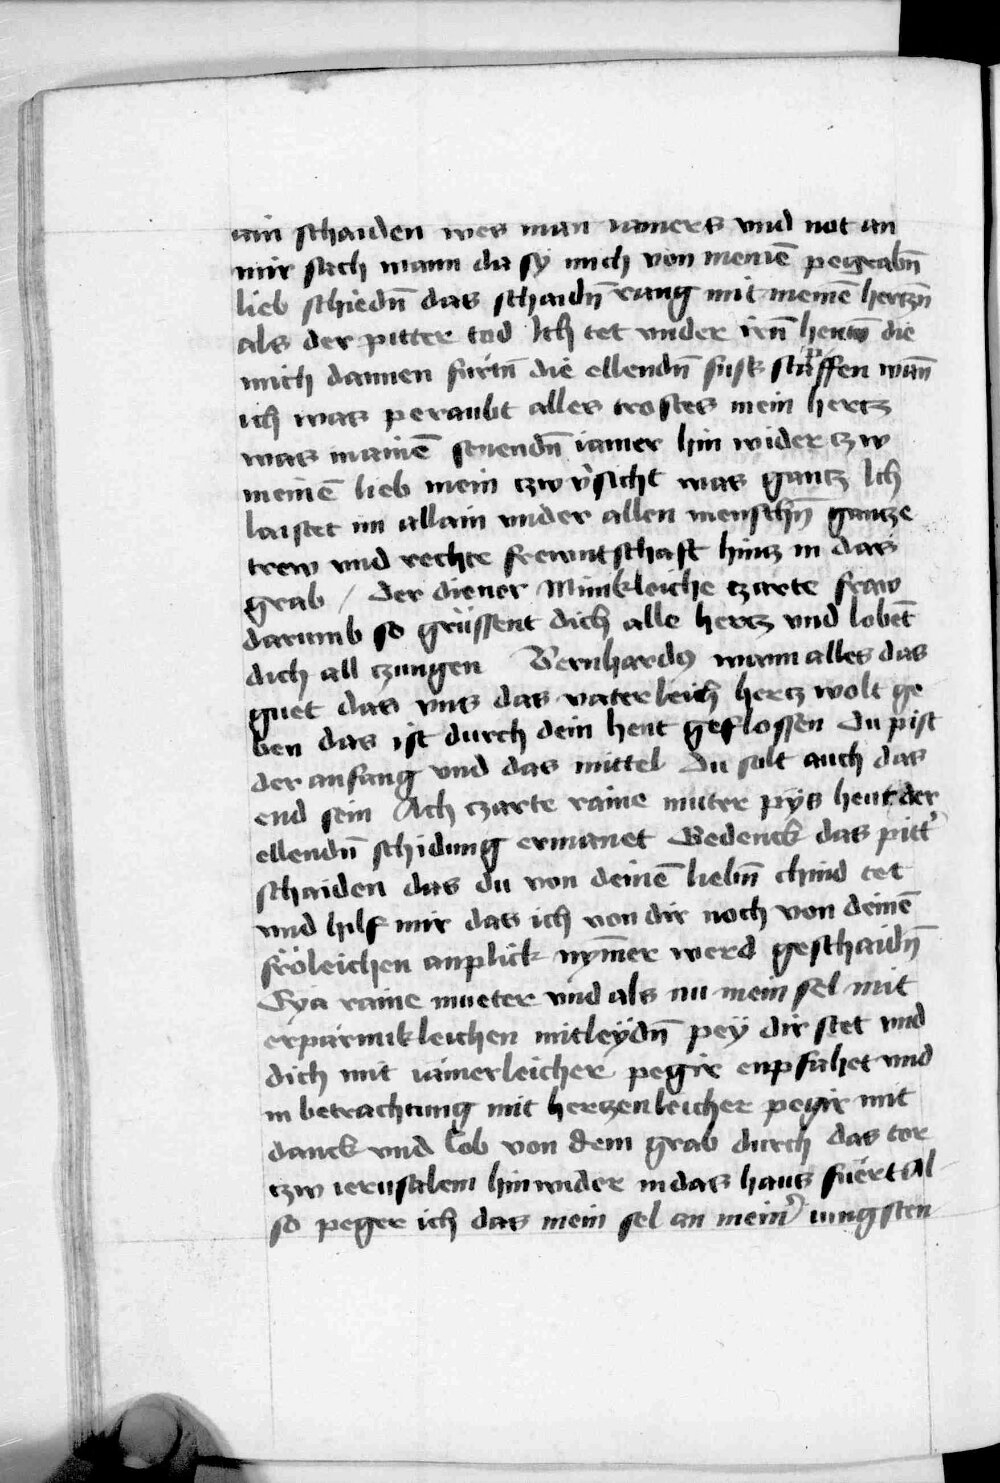 ain schaiden wes man iamers vnd not an
mir sach wann da sy mich von meinē pegrabn̄
lieb schiedn̄ das schaidn̄ rang mit meinē hertzn̄
als der pitter tod Ich tet vnder irn̄ hentn̄ die
mich dannen fürtn̄ die ellendn̄ fusstapffen wan̄
ich was peraubt alles trostes mein hertz
was mainē senendn̄ iamer hin wider tzw
meinē lieb mein tzwv̓sicht was gantz Ich
laistet im allain vnder allen menschn̄ gantze
trew vnd rechte frewntschaft hintz in das
grab / der diener Minikleiche tzarte fraw
darumb so grüssent dich alle hertz vnd lobēt
dich all tzungen Bernhardꝰ wann alles das
guet das vns das vaterleich hertz wolt ge
ben das ist durch dein hent geflossen Du pist
der anfang vnd das mittel Du solt auch das
end sein Ach tzarte raine muter pys hewt der
ellendn̄ schidung ermanet Gedenck das pitt̓
schaiden das du von deinē liebn̄ chind tet
vnd hilf mir das ich von dir noch von deinē
fröleichen anplick nym̄er werd geschaidn̄
Eya raine mueter vnd als nu mein sel mit
erpärmikleichen mitleydn̄ pey dir stet vnd
dich mit iämerleicher pegir enpfahet vnd
in betrachtung mit hertzenleicher pegir mit
danck vnd lob von dem grab durch das tor
tzw ierusalem hinwider in das haus füert Al
so peger ich das mein sel an mein̓ iungsten